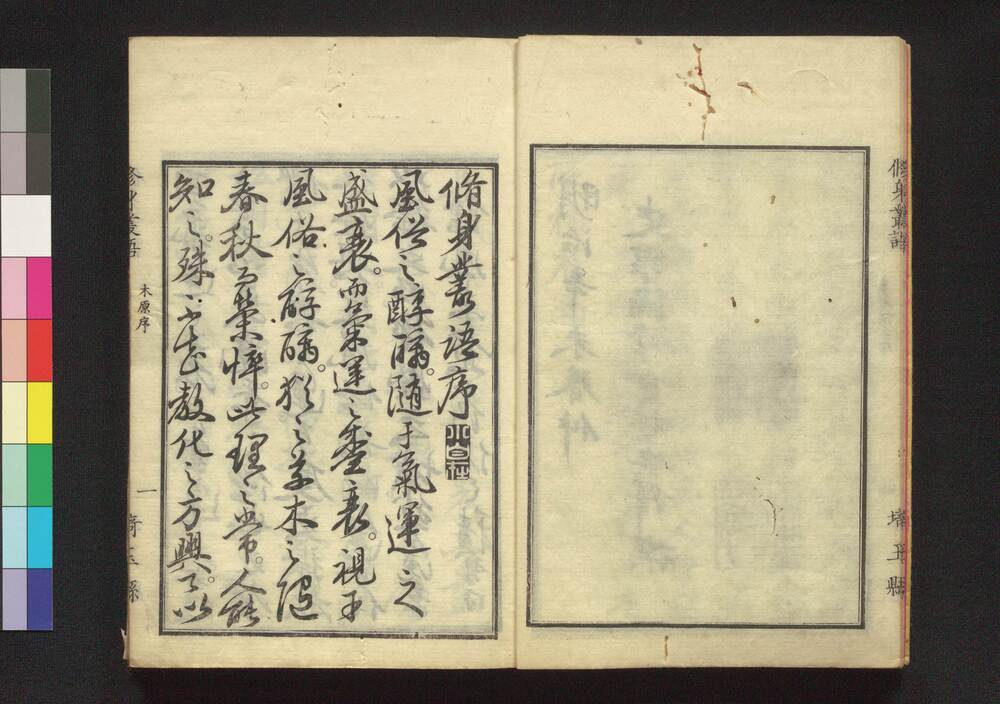 脩身叢語
埼玉縣
脩身叢語序
風俗之醇醨。隨于氣運之
盛衰。而氣運之盛衰。視乎
風俗之醇醨。猶之草木之隨
春秋而榮悴。此理之常。人能
知之。殊不知教化之方興。可以
脩身叢語
木原序
一
埼玉縣